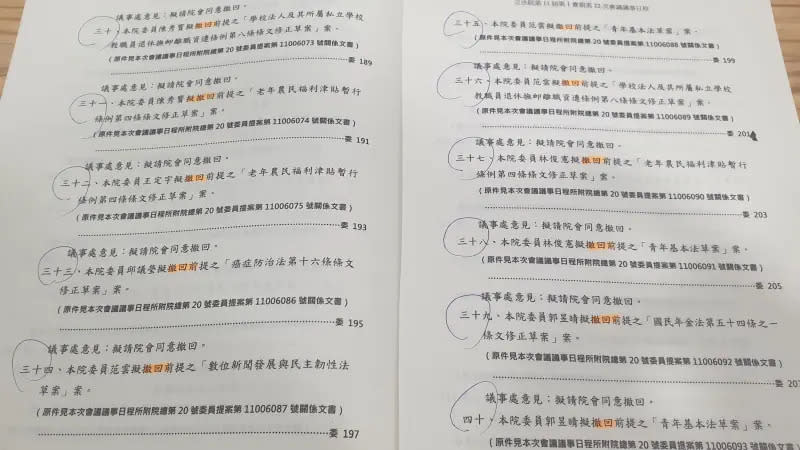 議事處意見：擬請院會同意撤回。
三十、本院委員陳秀寳擬撤回前提之「學校法人及其所屬私立學校
教職員退休撫卹離職資遣條例第八條條文修正草案」案。
（原件見本次會議議事日程所附院總第 20 號委員提案第 11006073 號關係文書）
委 189
議事處意見：擬請院會同意撤回。
三十一、本院委員陳秀寳擬撤回前提之「老年農民福利津貼暫行
條例第四條條文修正草案」案。
（原件見本次會議議事日程所附院總第 20 號委員提案第 11006074 號關係文書）
委 191
議事處意見：擬請院會同意撤回。
三十二、本院委員王定宇擬撤回前提之「老年農民福利津貼暫行
條例第四條條文修正草案」案。
（原件見本次會議議事日程所附院總第 20 號委員提案第 11006075 號關係文書）
委 193
議事處意見：擬請院會同意撤回。
三十三、本院委員邱議瑩擬撤回前提之「癌症防治法第十六條條文
修正草案」案。
（原件見本次會議議事日程所附院總第 20 號委員提案第 11006086 號關係文書）
委 195
議事處意見：擬請院會同意撤回。
三十四、本院委員范雲擬撤回前提之「數位新聞發展與民主韌性法
草案」案。
（原件見本次會議議事日程所附院總第 20 號委員提案第 11006087 號關係文書）
委 197
立法院第 11 屆第 1 會期第 12 次會議議事日程
三十五、本院委員范雲擬撤回前提之「青年基本法草案」案。
（原件見本次會議議事日程所附院總第 20 號委員提案第 11006088 號關係文書）
委 199
議事處意見：擬請院會同意撤回。
三十六、本院委員范雲擬撤回前提之「學校法人及其所屬私立學校
教職員退休撫卹離職資遣條例第八條條文修正草案」案。
（原件見本次會議議事日程所附院總第 20 號委員提案第 11006089 號關係文書）
委 201
議事處意見：擬請院會同意撤回。
三十七、本院委員林俊憲擬撤回前提之「老年農民福利津貼暫行
條例第四條條文修正草案」案。
（原件見本次會議議事日程所附院總第 20 號委員提案第 11006090 號關係文書）
委 203
議事處意見：擬請院會同意撤回。
三十八、本院委員林俊憲擬撤回前提之「青年基本法草案」案。
（原件見本次會議議事日程所附院總第 20 號委員提案第 11006091 號關係文書）
委 205
議事處意見：擬請院會同意撤回。
三十九、本院委員郭昱晴擬撤回前提之「國民年金法第五十四條之一
條文修正草案」案。
（原件見本次會議議事日程所附院總第 20 號委員提案第 11006092 號關係文書）
委 207
議事處意見：擬請院會同意撤回。
四十、本院委員郭昱晴擬撤回前提之「青年基本法草案」案。
（原件見本次會議議事日程所附院總第 20 號委員提案第 11006093 號關係文書）